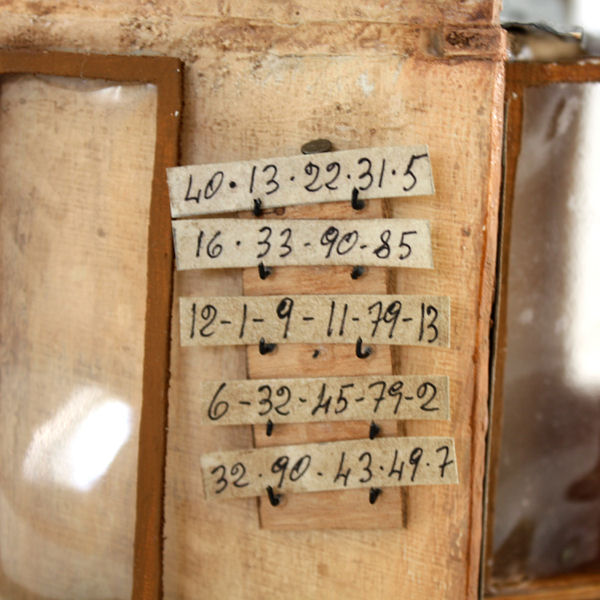 40·13·22·31·5
16·33-90-85
12-1-9-11-79-13
6-32-45-79-2
32·90·43·49·7